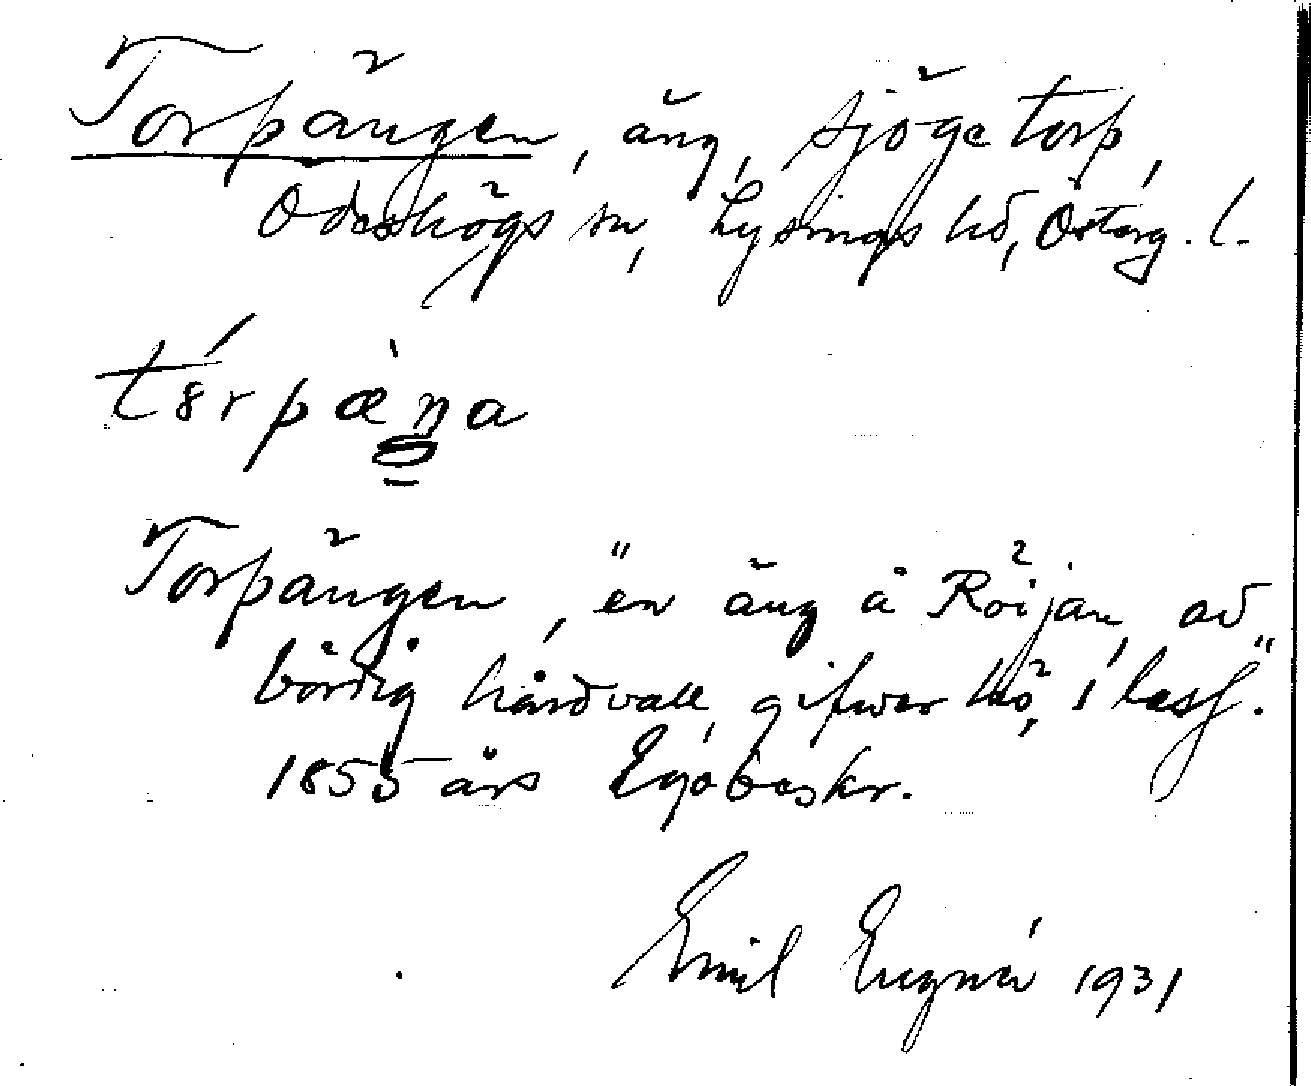 Torpängen, äng, Sjögetorp,
Ödeshögs sn, Lysings hd, Österg. l.
tórpæ̀ŋa
Torpängen, "en äng å Röijan, ad
bördig hårdvall, gifwer hö, 1 lass."
1855 års Egobeskr.
Emil Engnér 1931